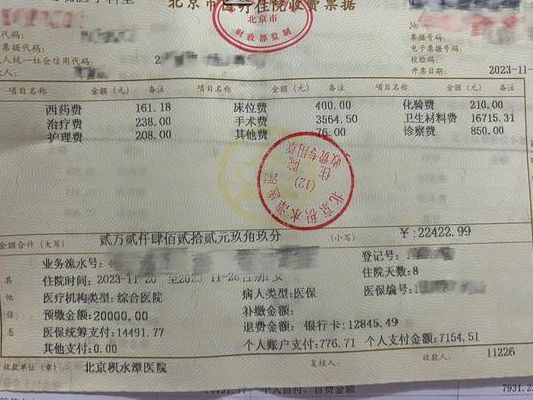 北京市医疗住院收费票据
北京市
财政部监制
票据代码:
电子票据代码:
票据号码:
电子票据号码:
校验码:
人统一社会信用代码: 2
开票日期: 2023-11-
项目名称 金额 (元) 备注 项目名称 金额 (元) 备注 项目名称 金额 (元) 备注
西药费 161.18 床位费 400.00 化验费 210.00
治疗费 238.00 手术费 3564.50 卫生材料费 16715.31
护理费 208.00 其他费 76.00 诊察费 850.00
北京积水潭医院
住院
收费专用章
(12)
金额合计 (大写) 贰万贰仟肆佰贰拾贰元玖角玖分 (小写) ￥: 22422.99
业务流水号: 登记号:
住院时间: 2023-11-20 至2023-11-28 性别: 女 住院天数:8
医疗机构类型:综合医院 病人类型:医保 医保编号:
预缴金额:20000.00 补缴金额:
医保统筹支付:14491.77 退费金额: 银行卡:12845.49
其他支付:0.00 个人账户支付:776.71 个人支付金额:7154.51
其他信息
收款单位 (章) 北京积水潭医院 复核人: 收款人: 11226
个人自付、自费金额